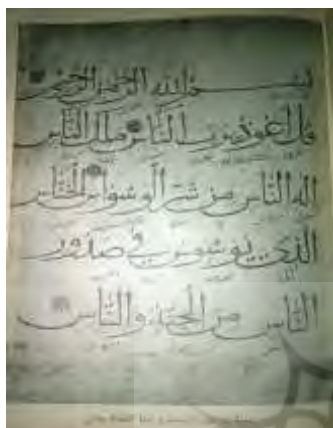 بسم الله الرحمن الرحيم
قل اعوذ برب الناس ملك الناس
اله الناس من شر الوسواس الخناس
الذي يوسوس في صدور
الناس من الجنة والناس